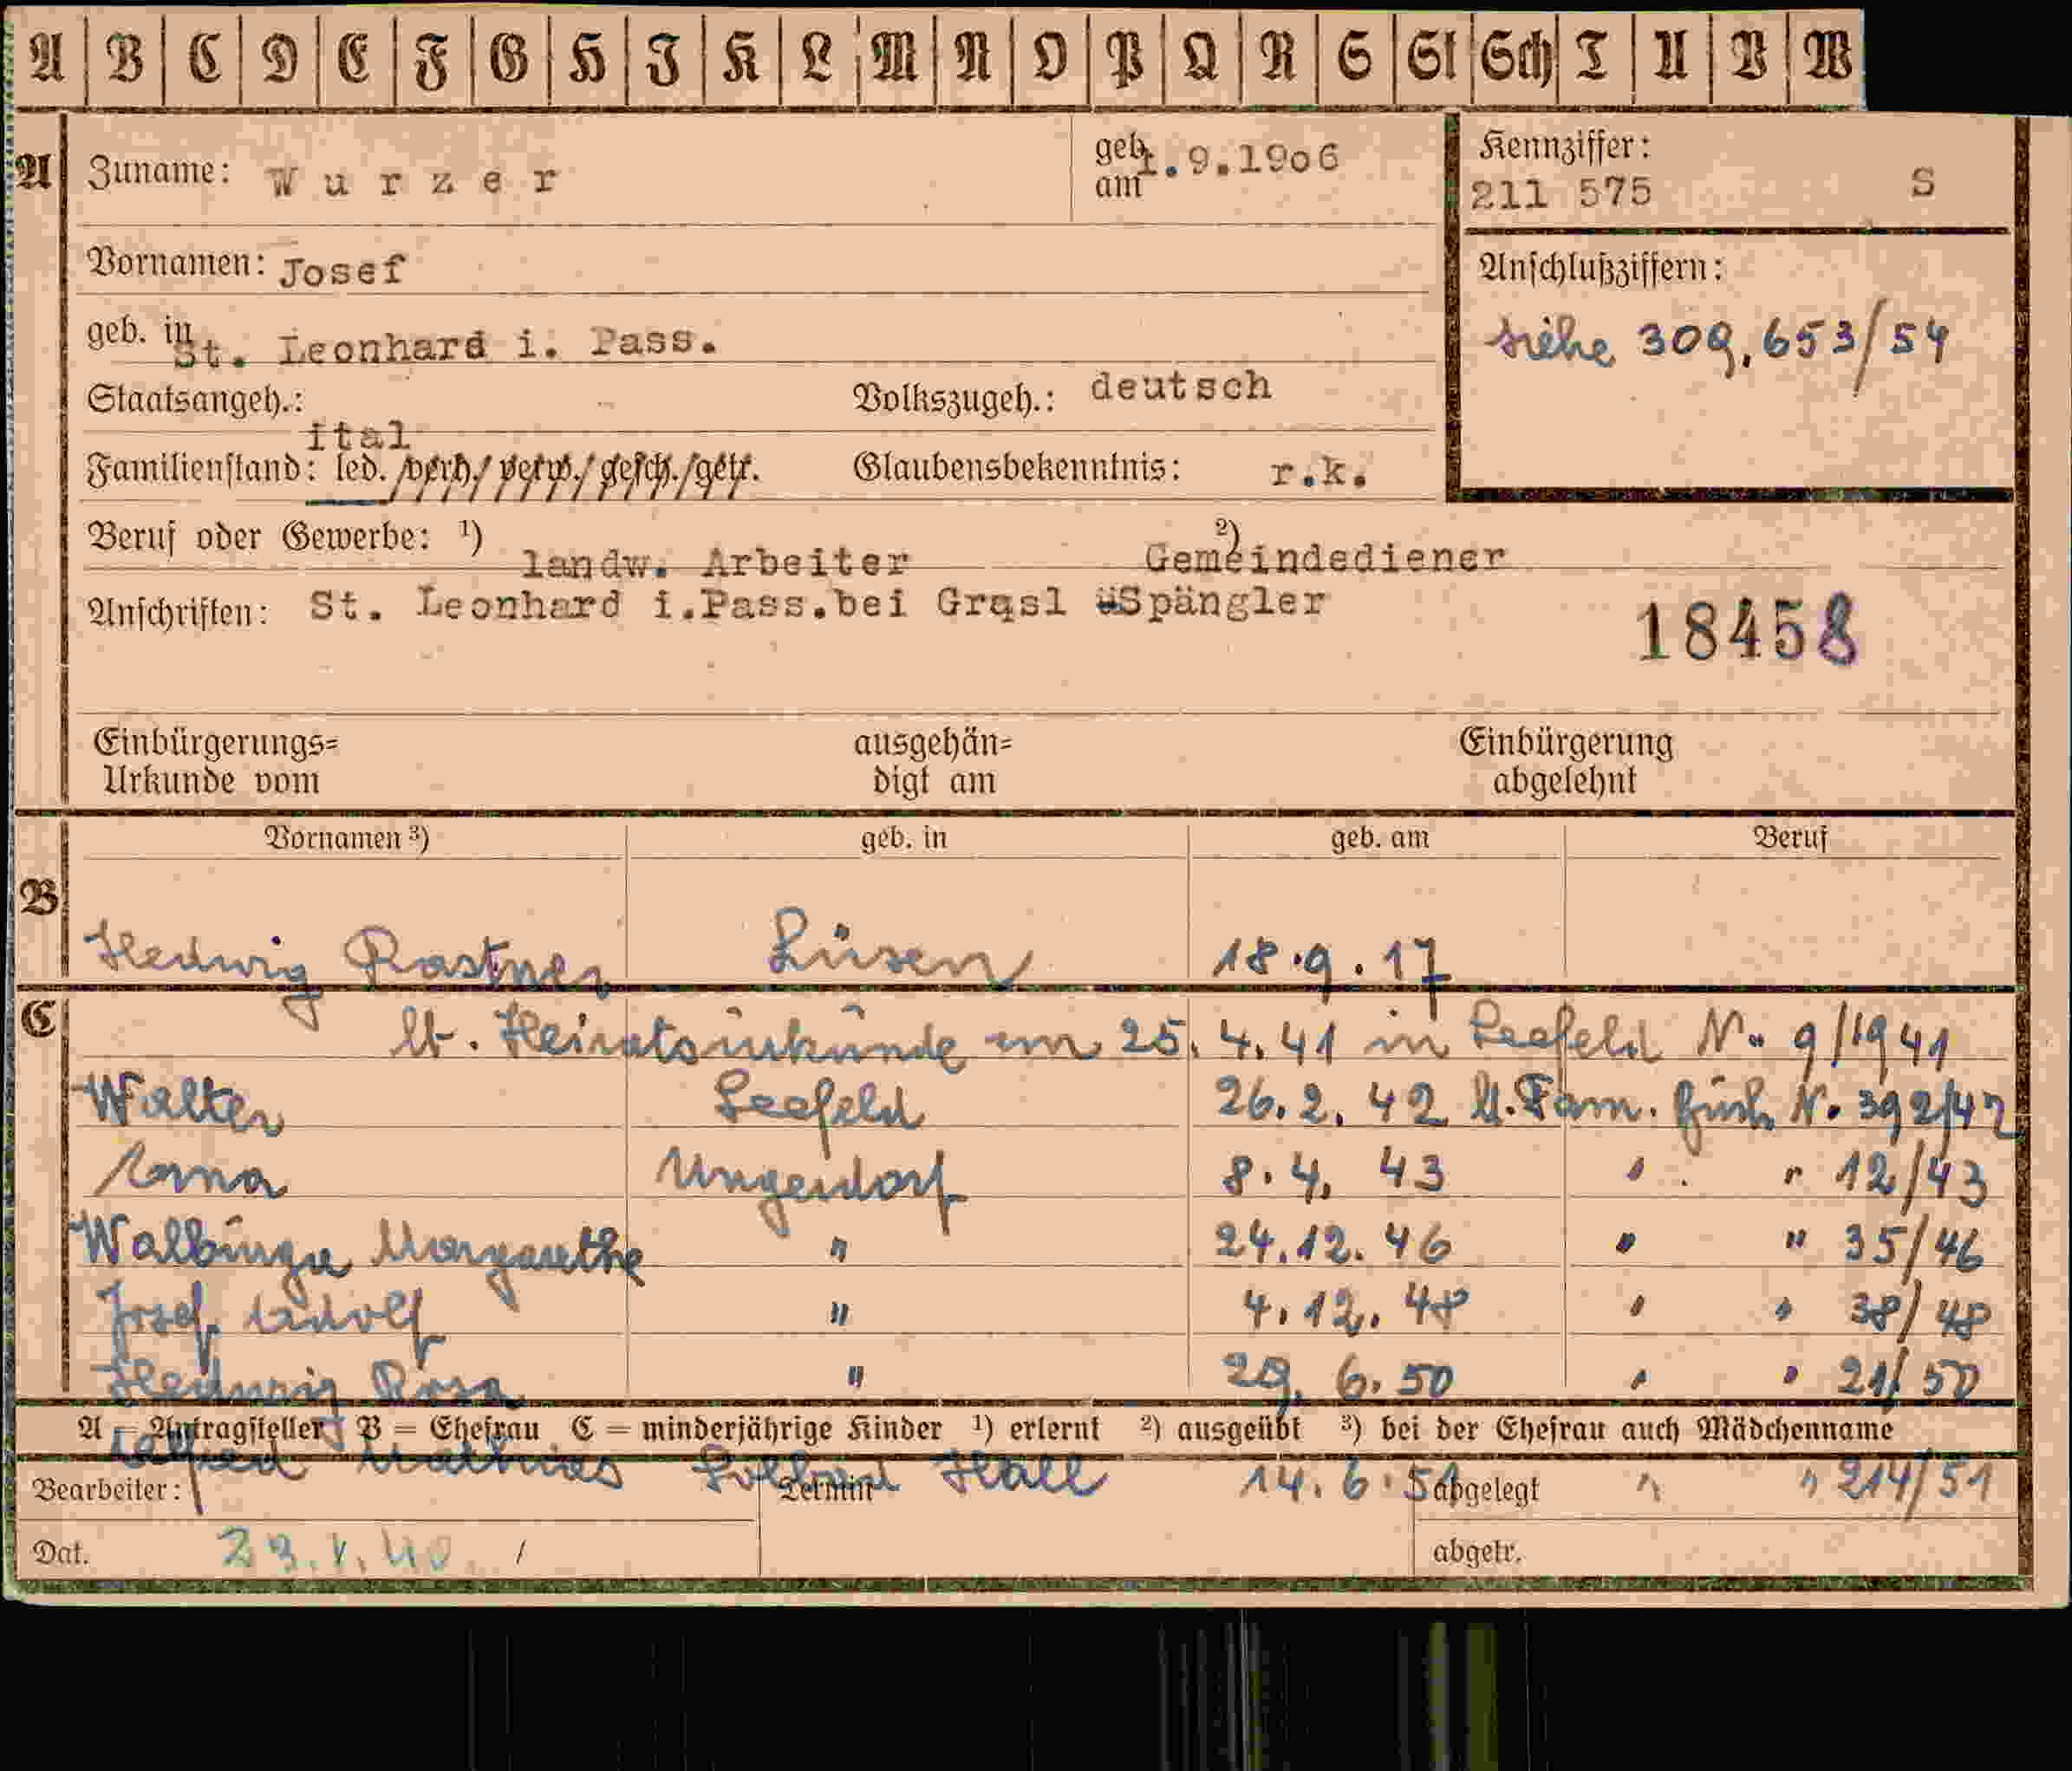 A B C D E F G H J K L M N O P Q R S St Sch T U V W
A Zuname: Wurzer geb. am 1.9.1906 Kennziffer: 211 575 S
Vornamen: Josef Anschlußziffern:
siehe 309.653/54
geb. in St. Leonhard i. Pass.
Staatsangeh.: ital Volkszugeh.: deutsch
Familienstand: led./verh./verw./gesch./getr. Glaubensbekenntnis: r.k.
Beruf oder Gewerbe: ¹) landw. Arbeiter ²) Gemeindediener
Anschriften: St. Leonhard i.Pass.bei Grasl Spängler
18458
Einbürgerungs= ausgehän= Einbürgerung
Urkunde vom digt am abgelehnt
Vornamen ³) geb. in geb. am Beruf
B Hedwig Rastner Lüsen 18.9.17
C lt. Heiratsurkunde am 25.4.41 in Seefeld N. 9/1941
Walter Seefeld 26.2.42 lt. Fam. Buch N. 392/42
Anna 8.4.43 " " 12/43
Walburga Margarethe " 24.12.46 " " 35/46
Josef Adolf " 4.12.48 " " 38/48
Hedwig Rosa " 29.6.50 " " 21/50
A = Antragsteller B = Ehefrau C = minderjährige Kinder ¹) erlernt ²) ausgeübt ³) bei der Ehefrau auch Mädchenname
Mathias Hall 14.6.51 " " 214/51
Bearbeiter: Termin abgelegt
Dat. 23.1.40 / abgetr.